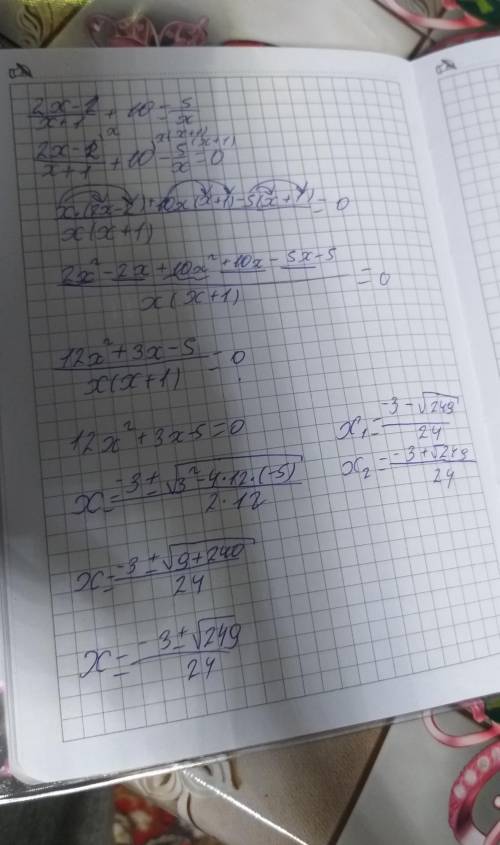 (2x-2)/(x+1) + 10 = 5/x
(2x-2)/(x+1) ^x + 10 ^x(x+1) - 5/x ^(x+1) = 0
(x·(2x-2)+10x(x+1)-5(x+1))/(x(x+1)) = 0
(2x²-2x+10x²+10x-5x-5)/(x(x+1)) = 0
(12x²+3x-5)/(x(x+1)) = 0
12x²+3x-5=0
x=(-3±√(3²-4·12·(-5)))/(2·12)
x=(-3±√(9+240))/24
x=(-3±√249)/24
x₁=(-3-√249)/24
x₂=(-3+√249)/24